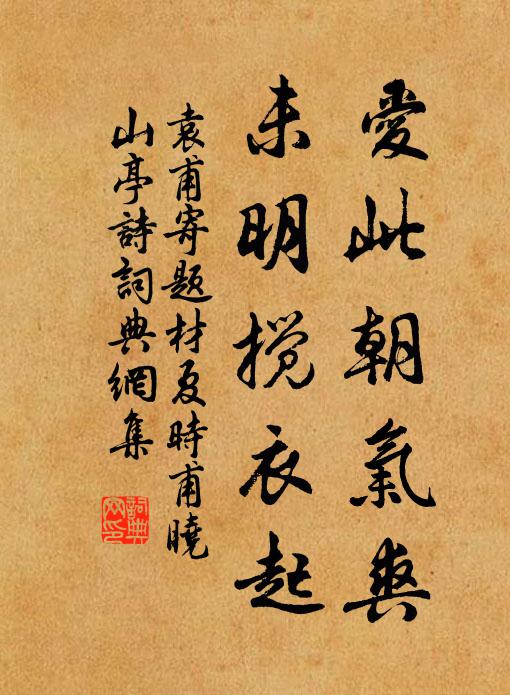 愛此朝氣爽
未明攬衣起
袁甫寄題材夏時甫曉
山亭詩詞典網集
詞典
網印